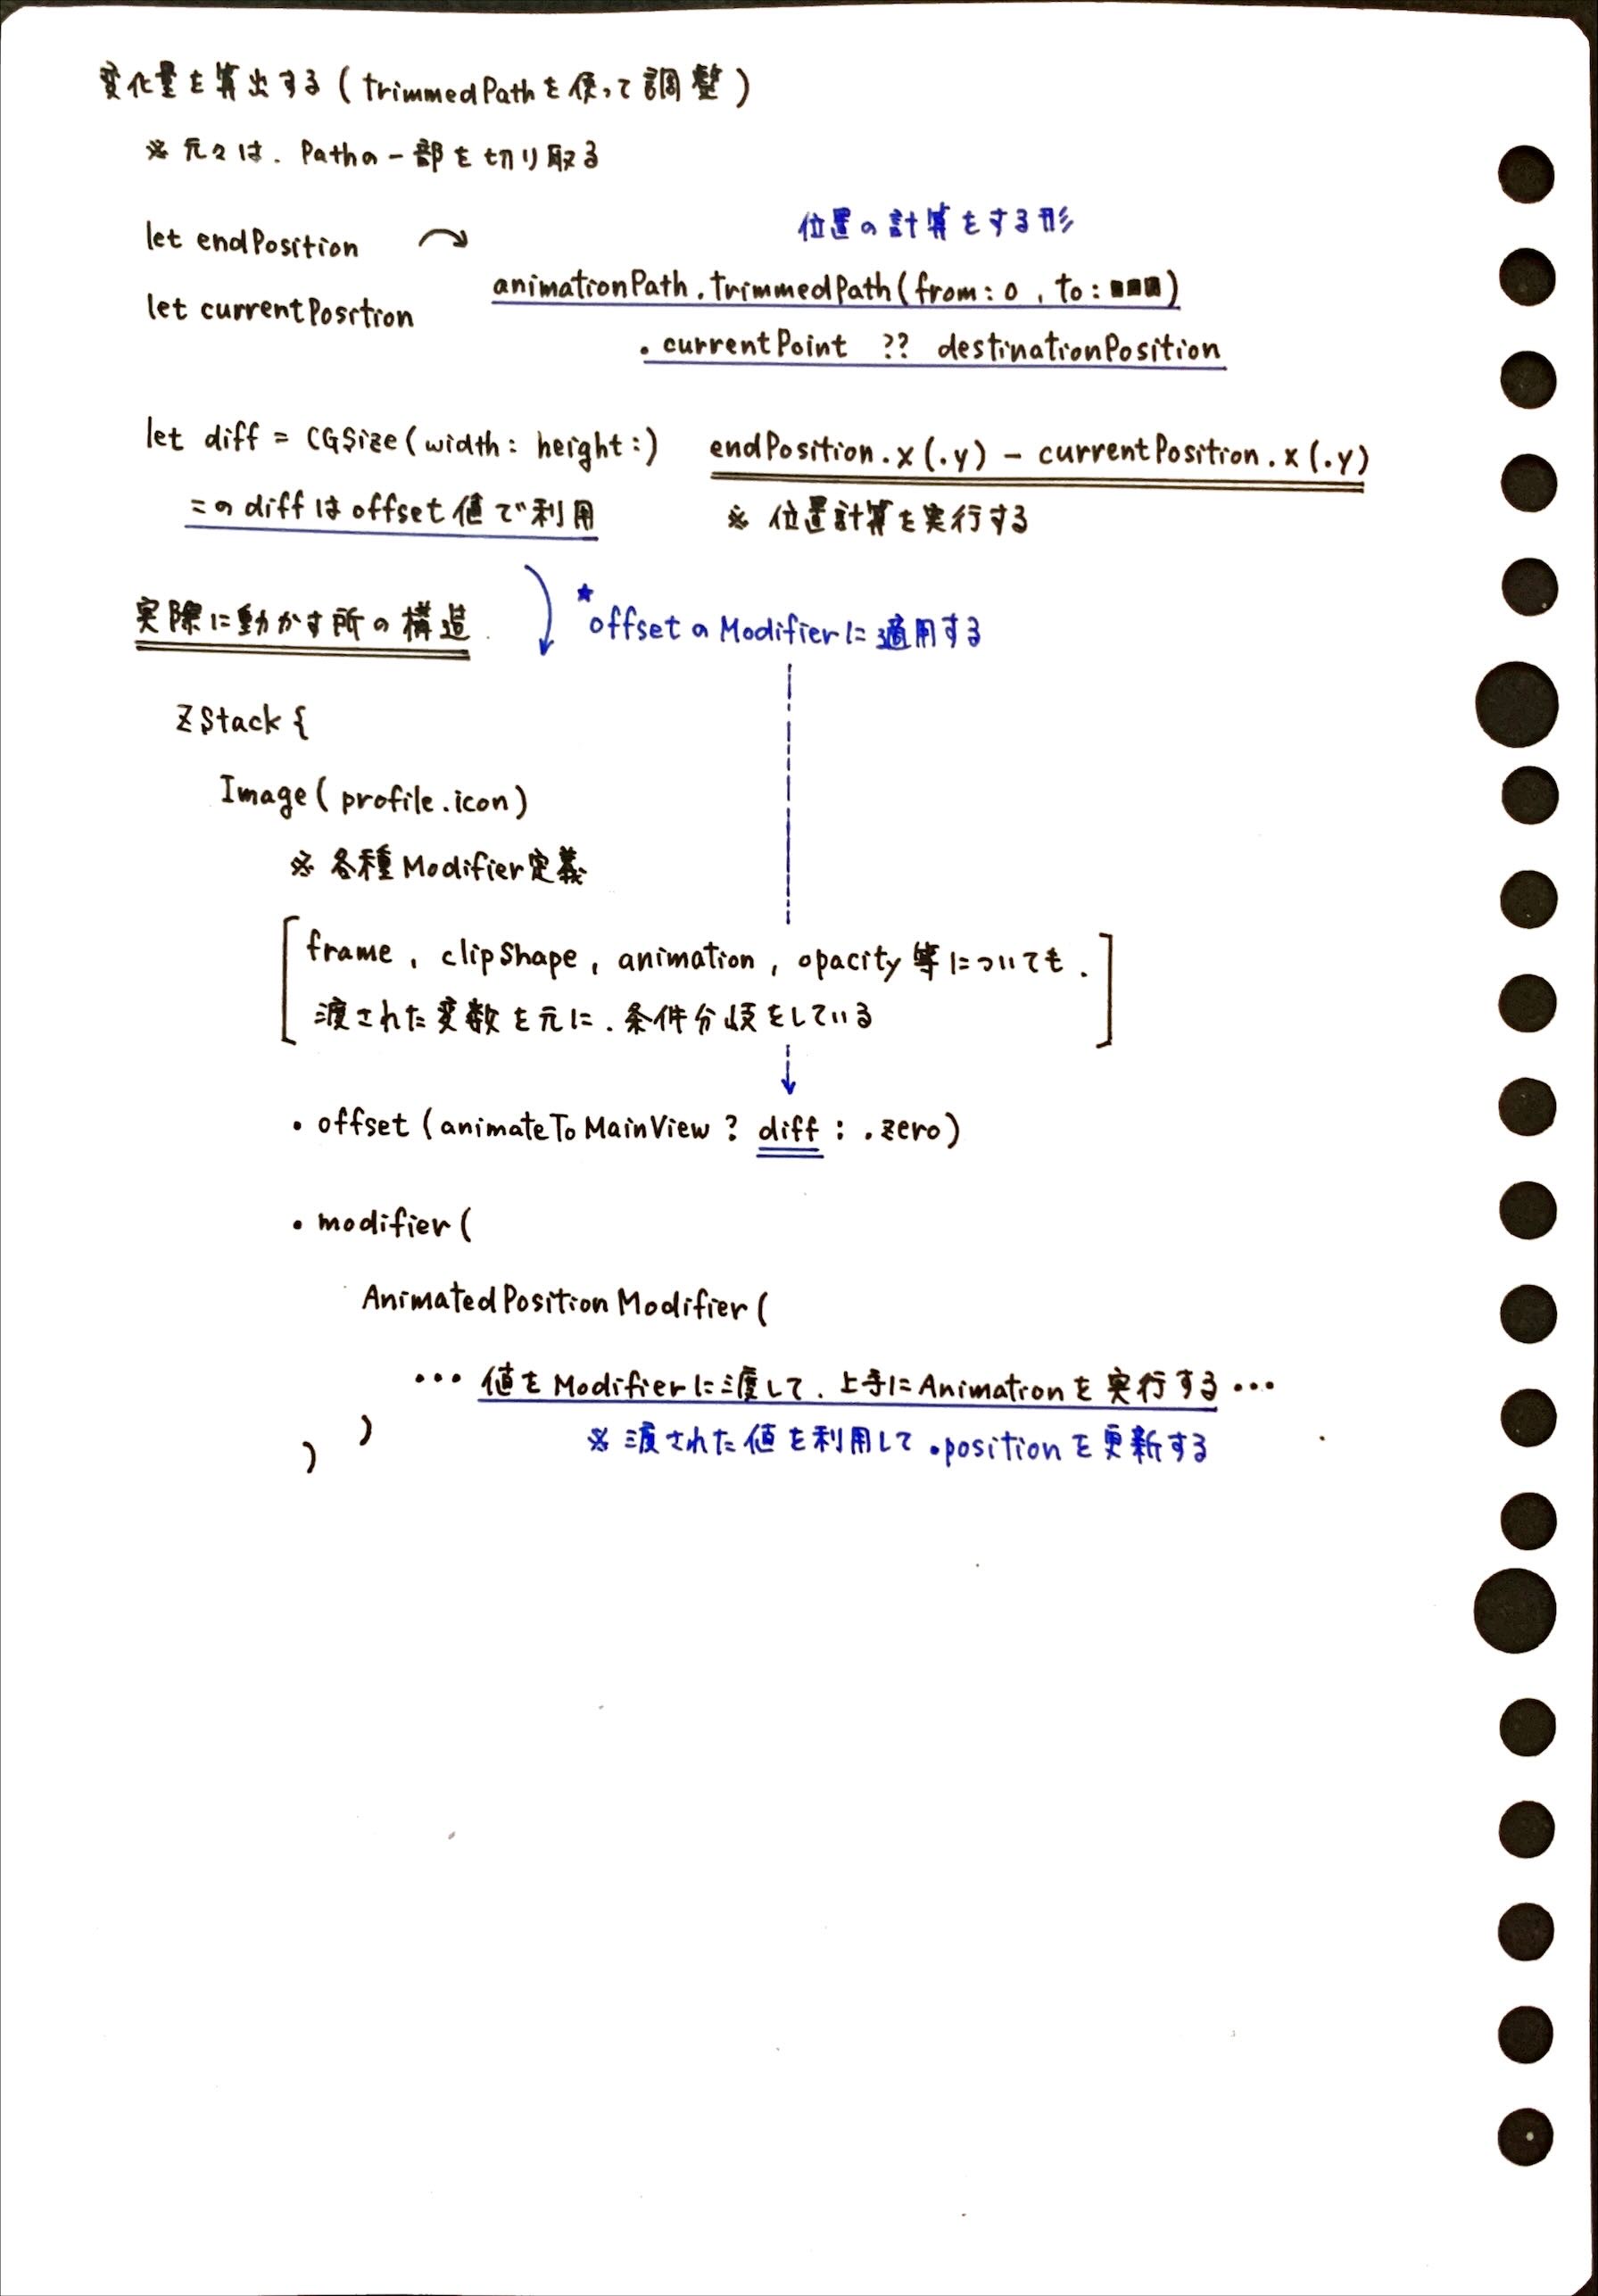 変化量を算出する(trimmedPathを使って調整)
※ 元々は. Pathの一部を切り取る
位置の計算をする形
let endPosition
animationPath.trimmedPath(from: 0 , to: ■■■)
let currentPosition
.currentPoint ?? destinationPosition
let diff = CGSize(width: height:) endPosition.x(.y) - currentPosition.x(.y)
このdiffはoffset値で利用 ※ 位置計算を実行する
★
実際に動かす所の構造 offsetのModifierに適用する
ZStack {
Image(profile.icon)
※ 各種Modifier定義
frame , clipShape , animation , opacity等についても.
渡された変数を元に. 条件分岐をしている
・offset (animateToMainView ? diff : .zero)
・modifier (
AnimatedPositionModifier (
... 値をModifierに渡して. 上手にAnimationを実行する ...
※ 渡された値を利用して .positionを更新する
)
)